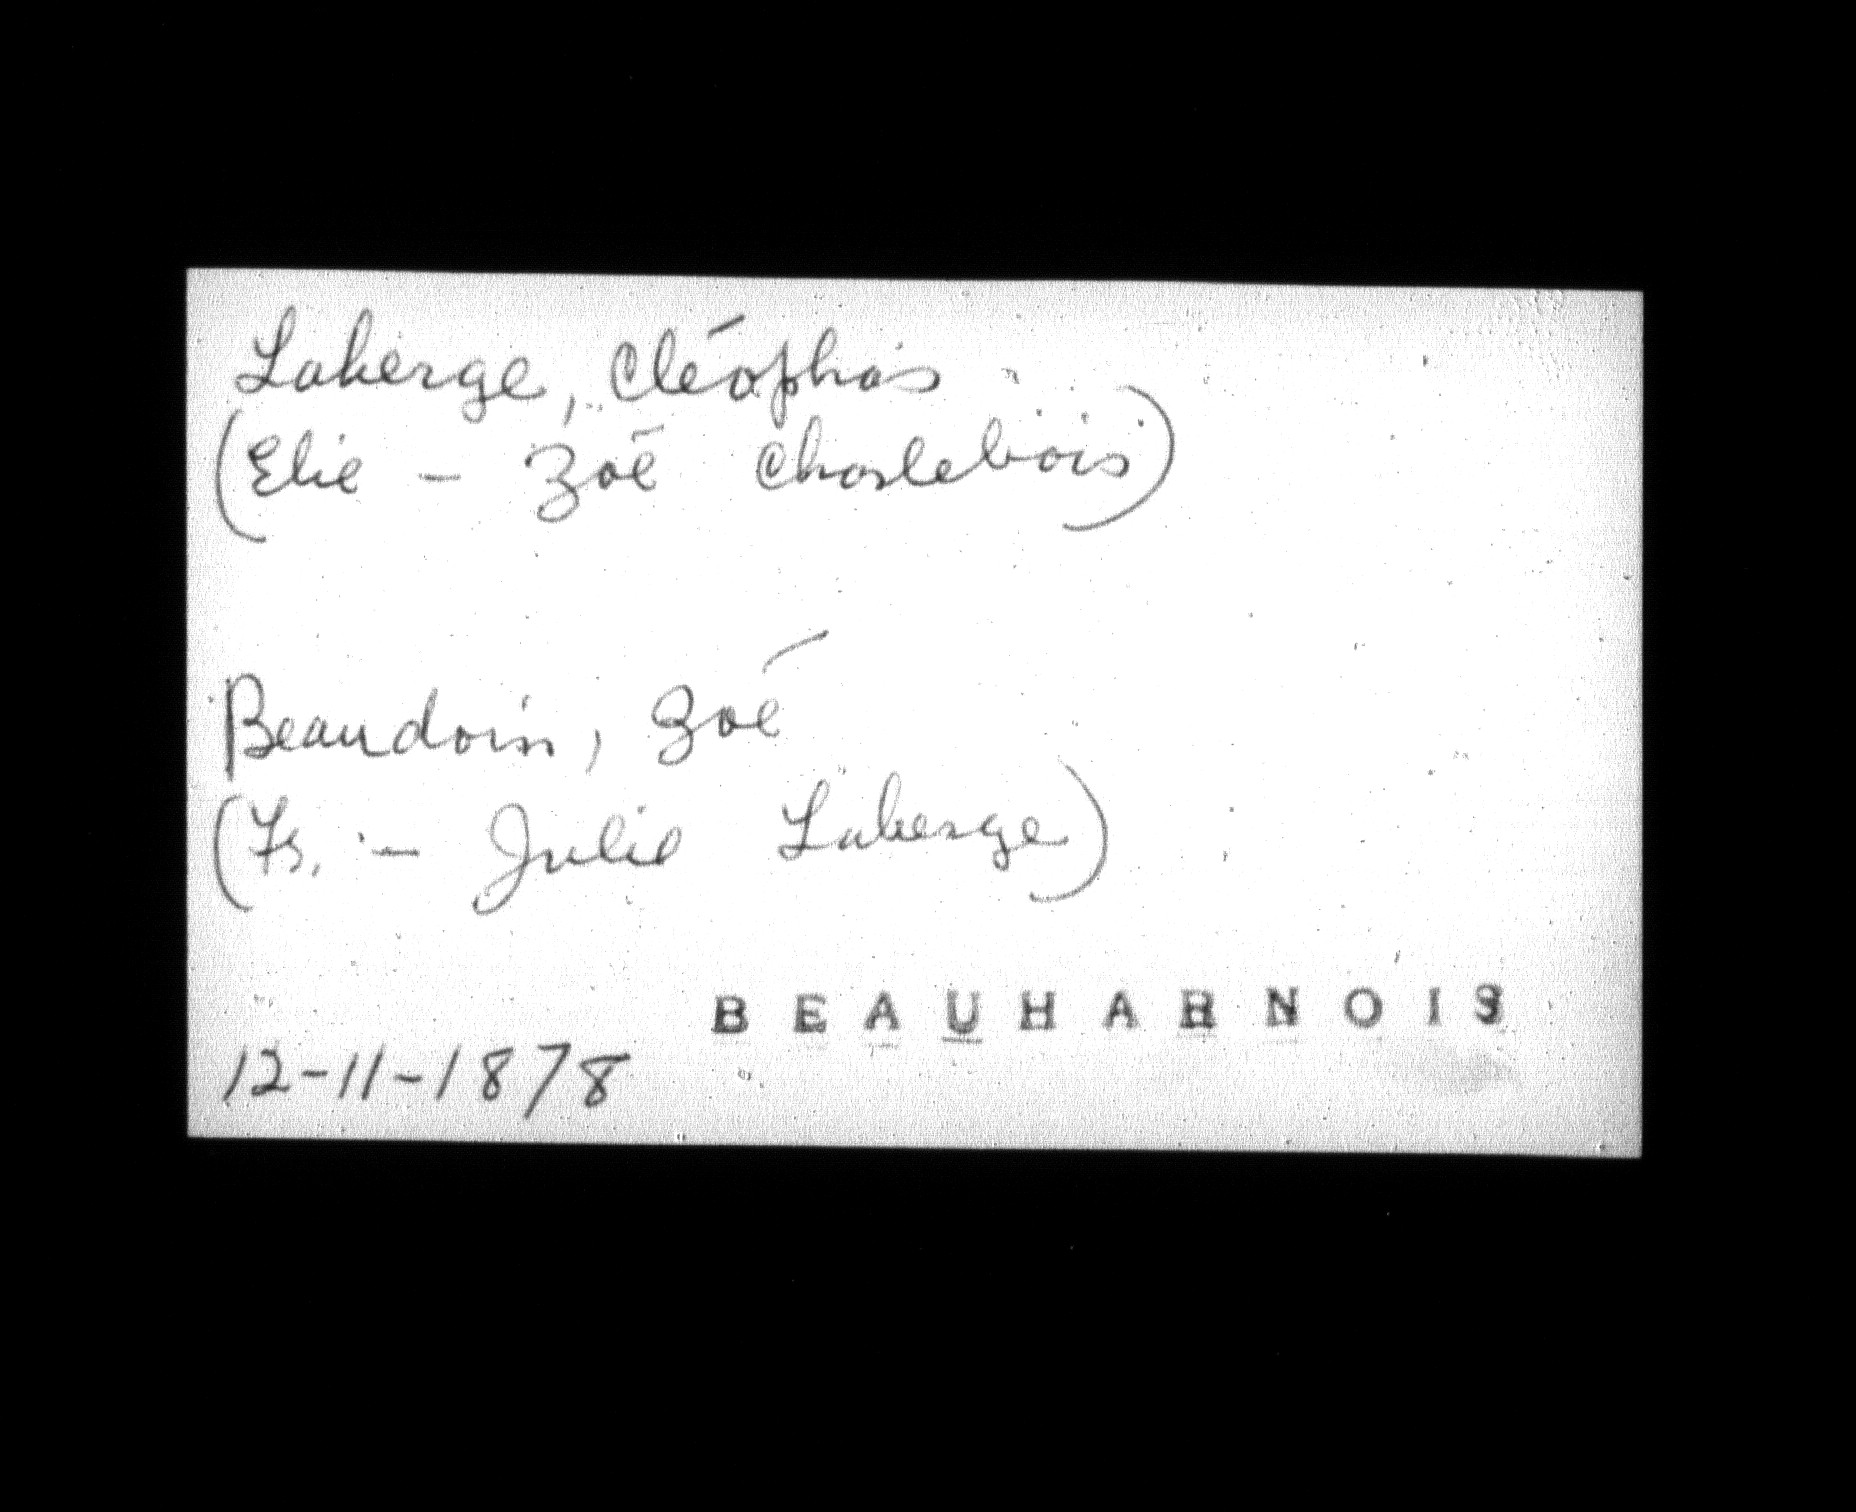 Laberge, Cléophas
(Elie - Zoé Charlebois)
Beaudoin, Zoé
(Fs. - Julie Laberge)
BEAUHARNOIS
12-11-1878